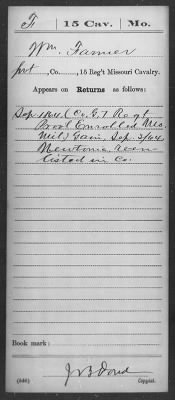 F | 15 Cav. | Mo.
Wm. Farrier
pvt, Co. , 15 Reg't Missouri Cavalry.
Appears on Returns as follows:
Sep 1864 (Co. G. 7 Regt
Provl Enrolled Mo.
Mil) Gain, Sep. 3/64,
Newtonia, Reen-
listed in Co.
Book mark:
(546)
Copyist.